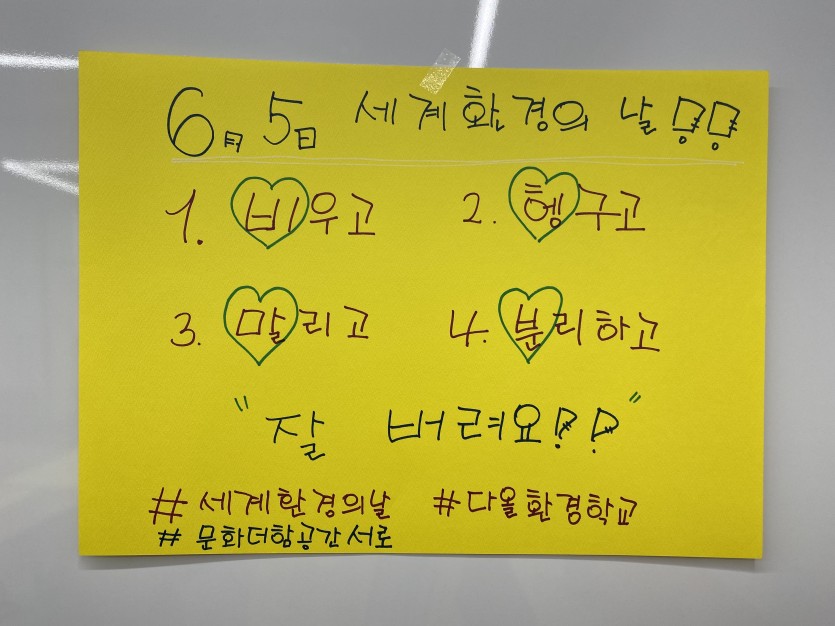 6月 5日 세계환경의 날!!
1. 비우고 2. 헹구고
3. 말리고 4. 분리하고
"잘 버려요!!"
#세계환경의날 #다올환경학교
#문화더함공간서로